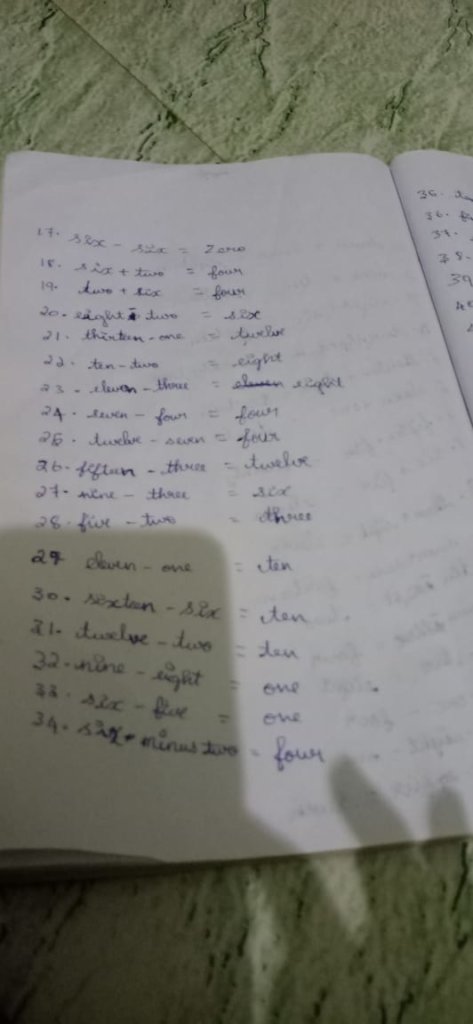 17. six - six = Zero
18. six + two = four
19. two + six = four
20. eight - two = six
21. thirteen - one = twelve
22. ten - two = eight
23. eleven - three = eleven eight
24. seven - four = four
25. twelve - seven = four
26. fifteen - three = twelve
27. nine - three = six
28. five - two = three
29 eleven - one = ten
30. sixteen - six = ten
31. twelve - two = ten
32. nine - eight = one
33. six - five = one
34. six - minus two = four
35.
36.
37.
38.
39